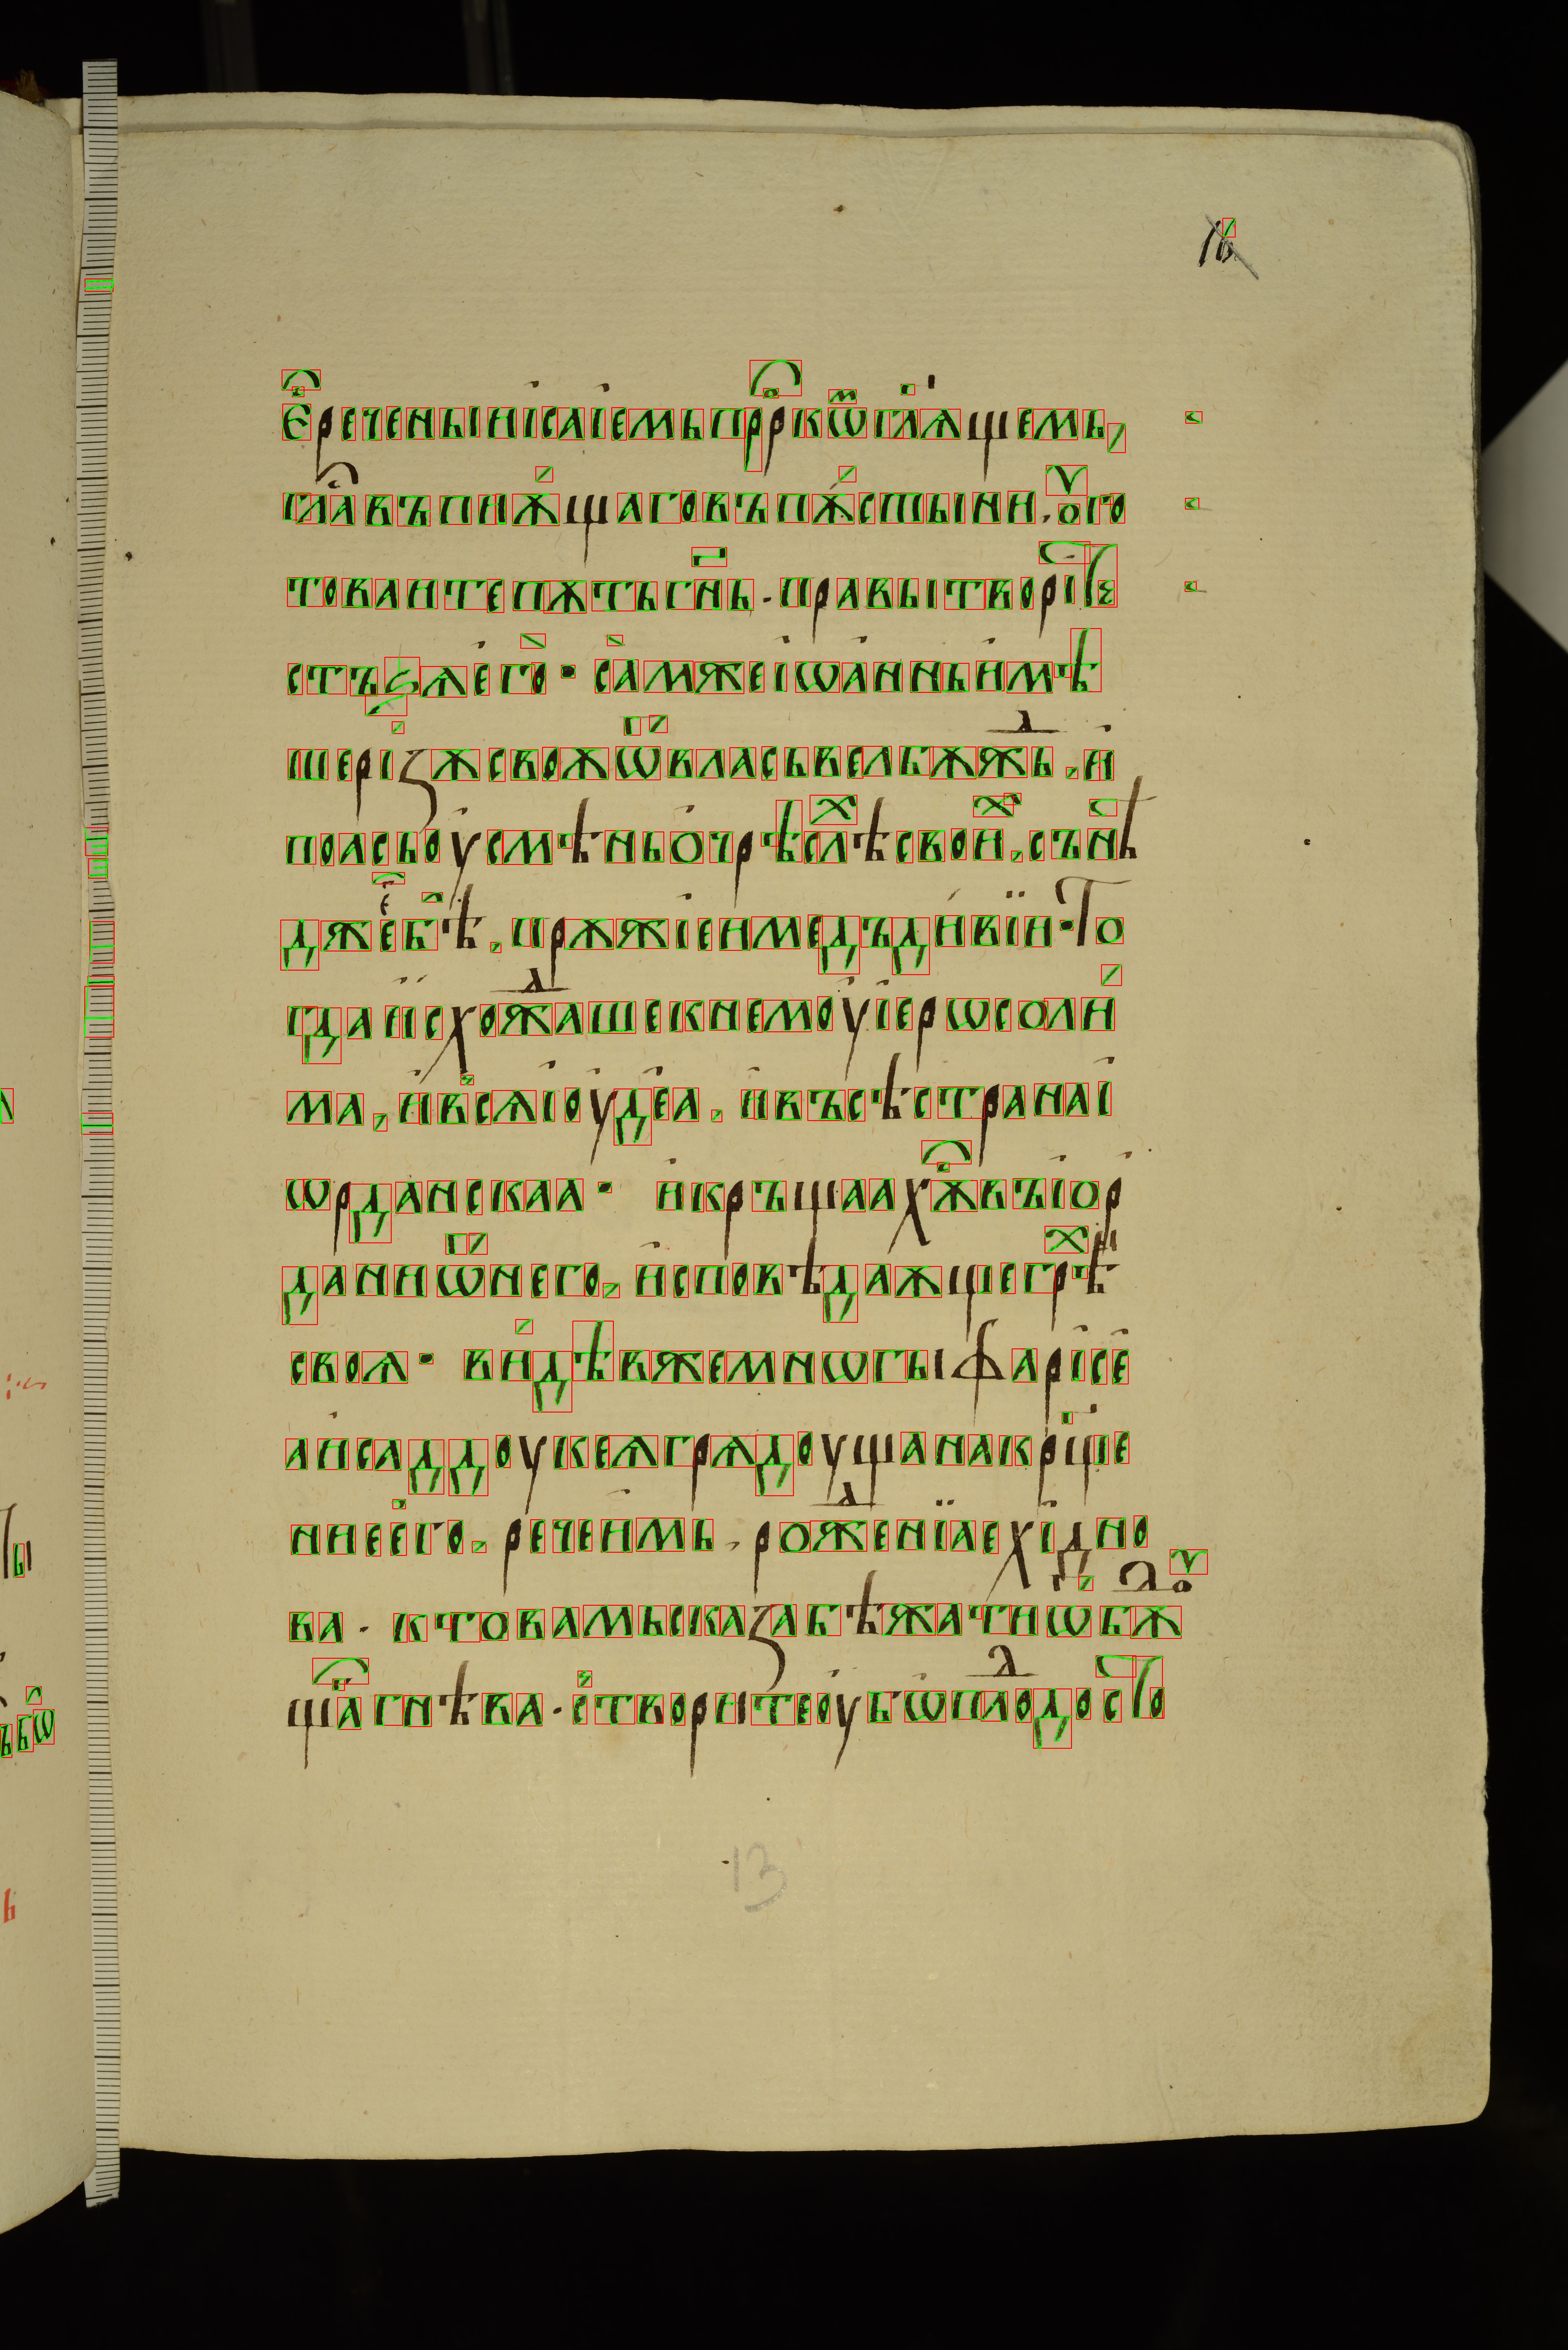 е҆̑реченыи і҆саі҆емь прⷪ҇ркѿ гл҃ѧщемь,
гла̑ въпиѫ́щаго въ пѫ́стыни. оуго
товаите пѫть гн҃ь. правы творіⷮе
стъѕѧ е҆го̀ · са̀м же і҆ѡа҆нньи҆мѣ
ше рі́зѫ своѫ ѿ власъ велбѫжⷣь, и҆
поасъ о҆усмѣнъ о҆ чрѣслѣⷯ свои́ⷯ, сънѣⷭ
д же е҆мⷹ бѣ̑, прѫжіе и медъ ди҆вїи · То
гда и҆схожⷣаше к немоу҆ і҆ерѡсоли́
ма, и҆ всѧ і҆оу҆де҆а, и҆ въсѣ страна і҆
ѡрданскаа · и҆ кръщаахѫⷭ въ і҆о҆р
данни ѿ него, и҆сповѣдаѫще грѣⷯ
своѧ · ви́дѣв же мнѡгы фарі҆се҆
а и҆ саддоукеѧ грѧдоуща на крⷭ҇ще
ние е҆го, рече и҆мь, рожⷣенїа ехі҆дно
ва. кто вамь сказа бѣжати ѿ бⷹдѫ
ща̑ гнѣва. сⸯтвори́те оу҆бѡ плодⷣ достⷪо
13